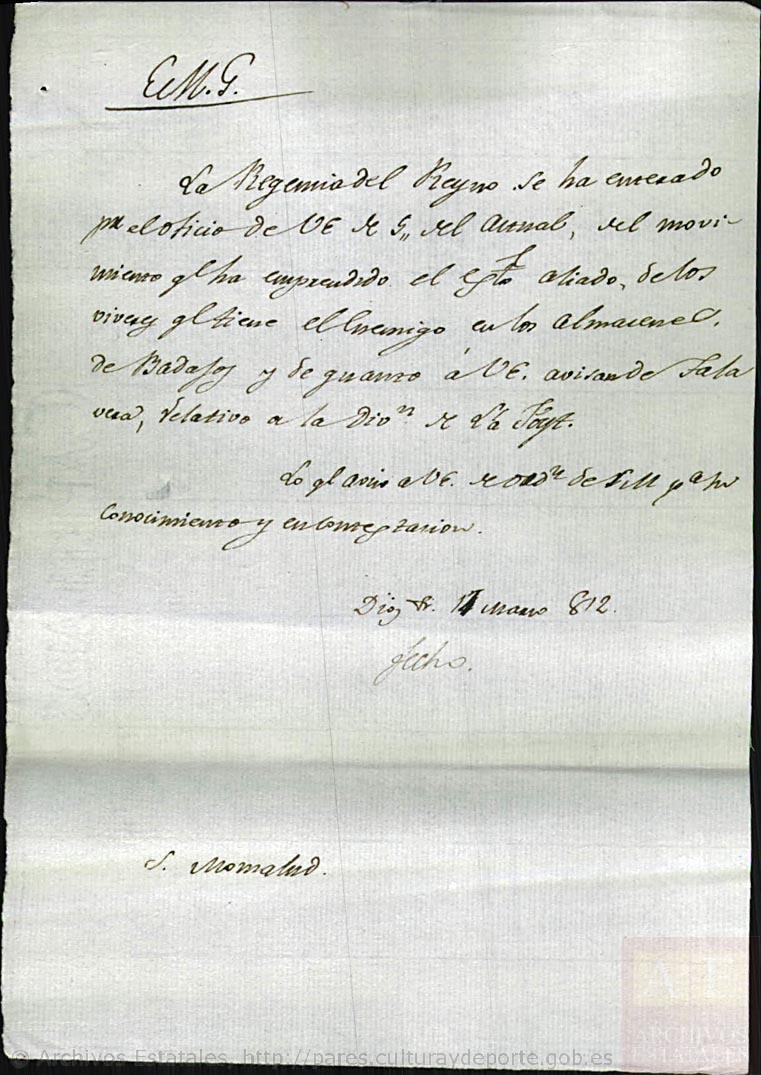 E.M.G.
La Regencia del Reyno se ha enterado
pr. el oficio de VE de 5,, del actual, del movi-
miento ql ha emprendido el Exto aliado, de los
viveres ql tiene el Enemigo en los almacenes
de Badajoz y de quanto á VE. avisan de Tala
vera, relativo a la Divn. de
Lo ql aviso a VE. de ordn de pa su
conocimiento y en contestacion.
Dios &. 11 Marzo 812.
fecho.
S. Monsalud.
© Archivos Estatales, http://pares.culturaydeporte.gob.es
ARCHIVOS
ESTATALES